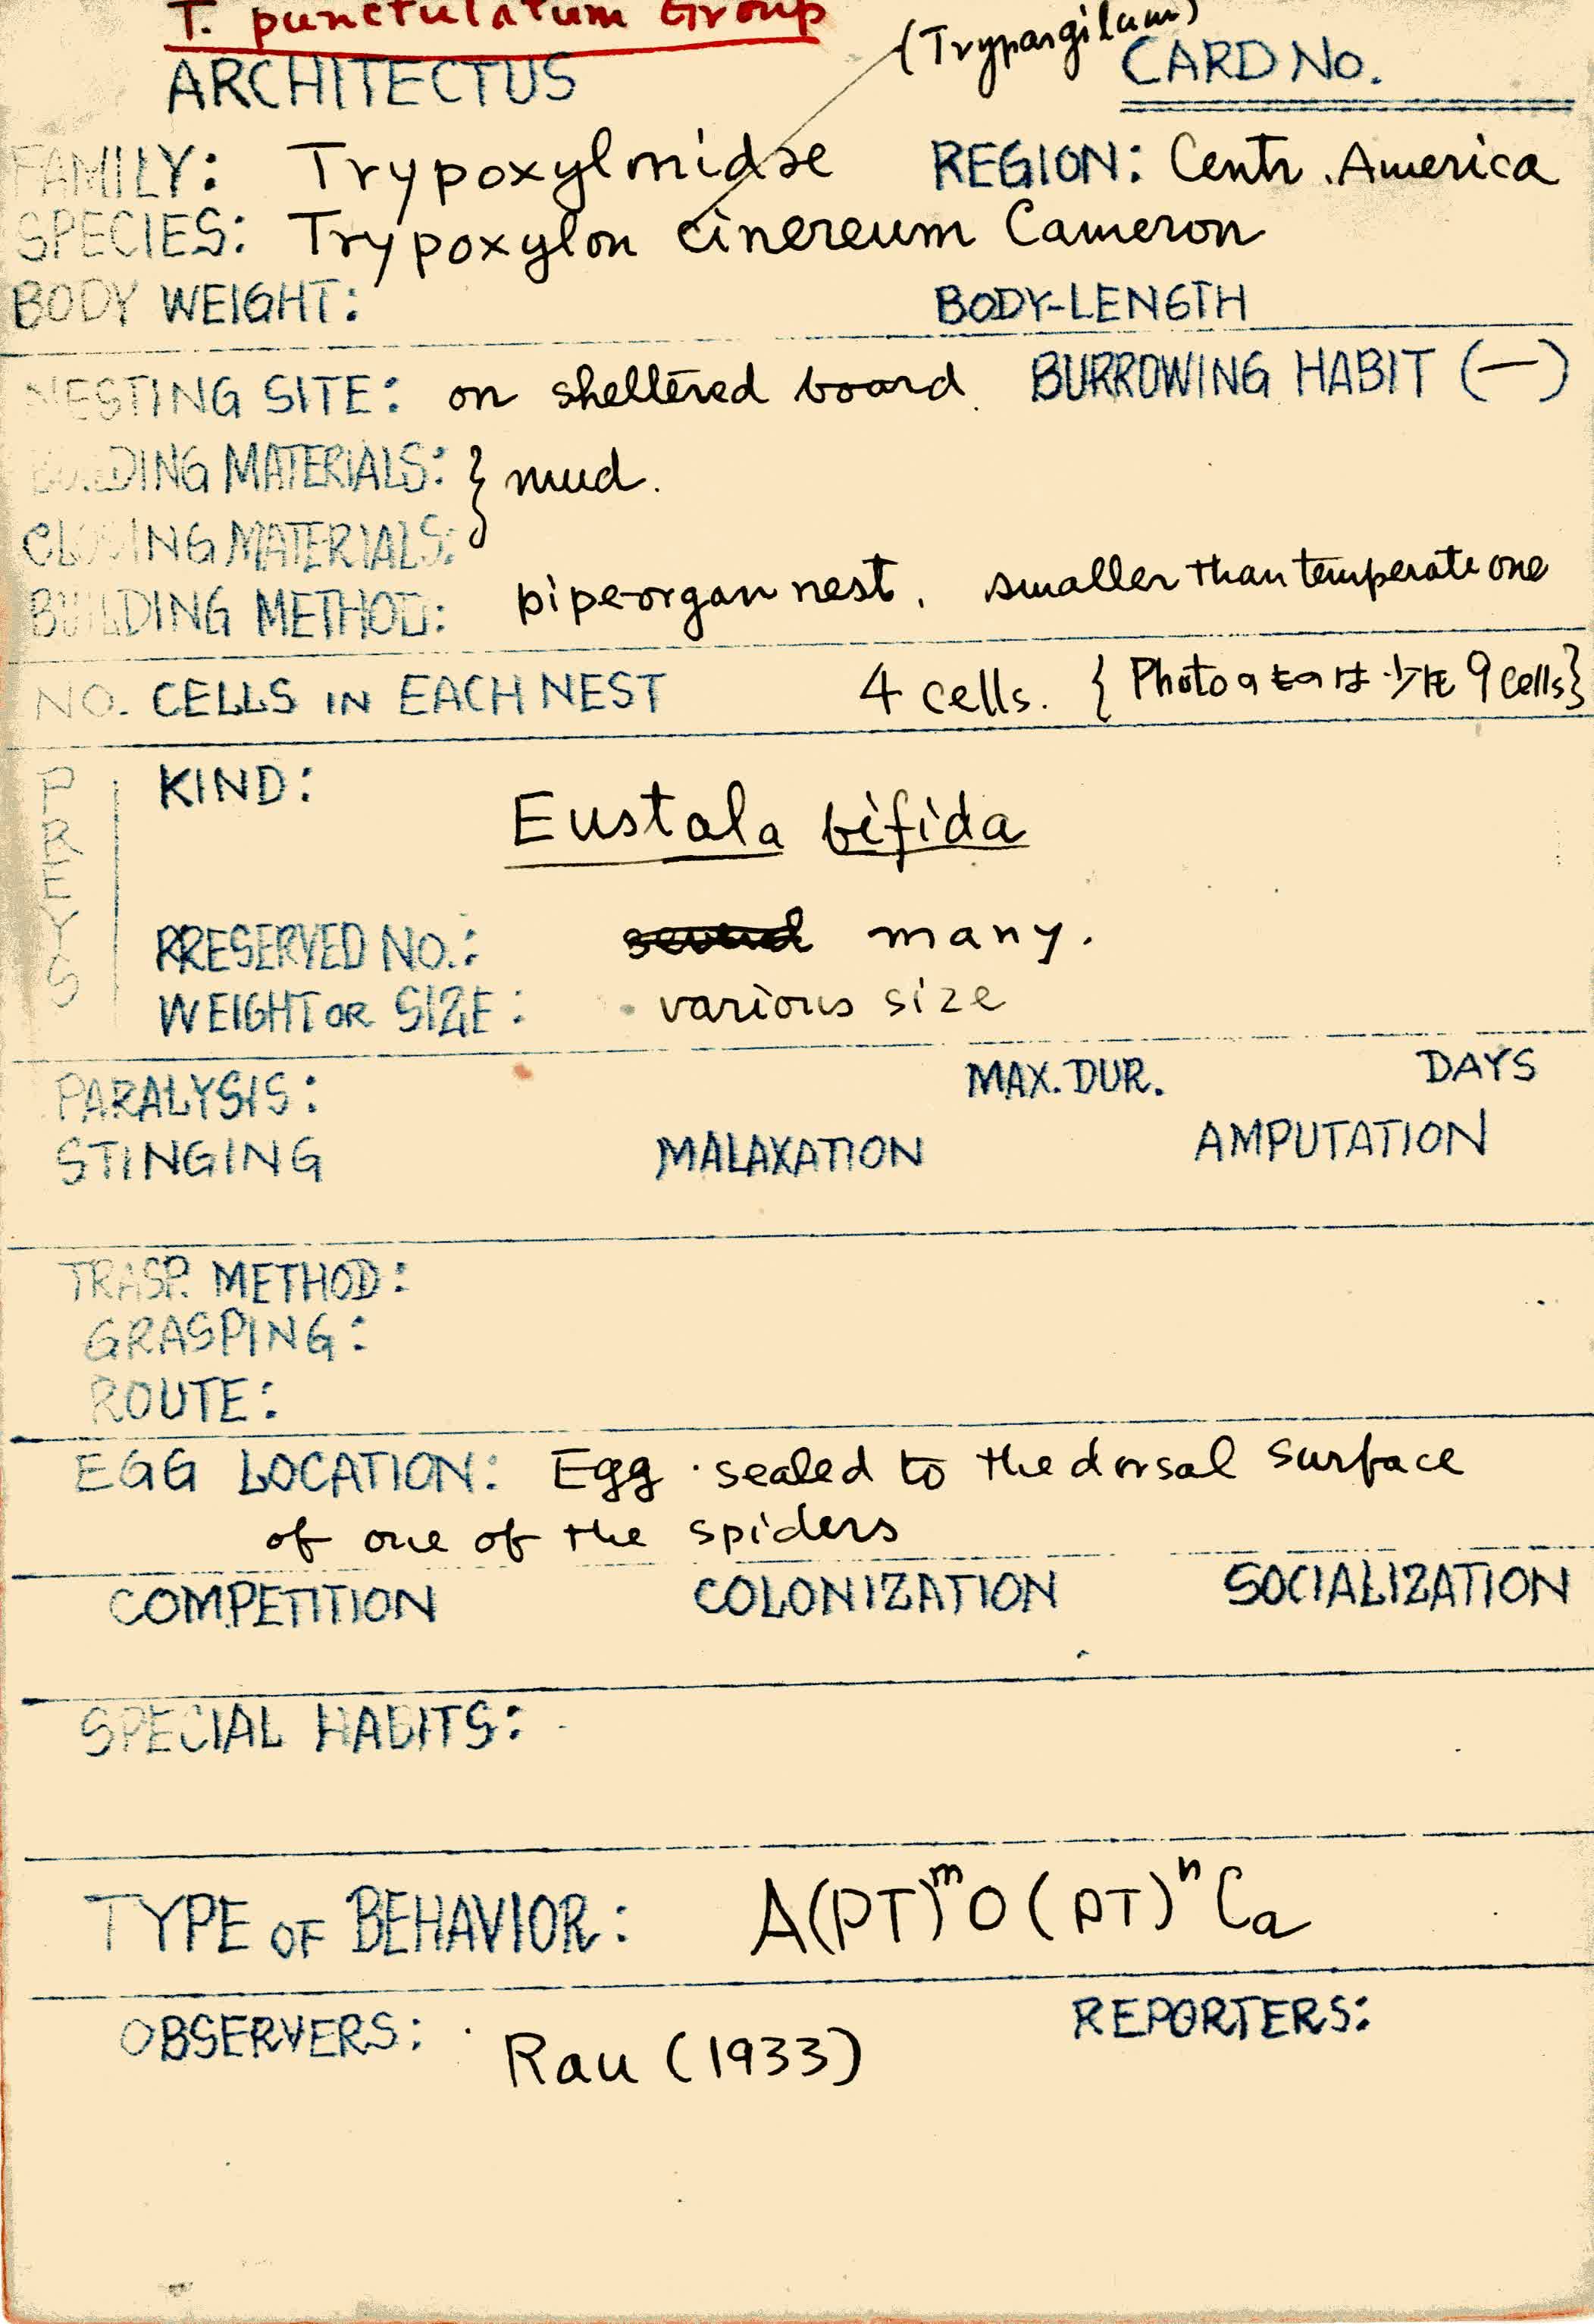 T. punctulatum Group
(Trypargilum)
ARCHITECTUS CARD NO.
FAMILY: Trypoxylonidae REGION: Centr. America
SPECIES: Trypoxylon cinereum Cameron
BODY WEIGHT: BODY-LENGTH
NESTING SITE: on sheltered board. BURROWING HABIT (—)
BUILDING MATERIALS: } mud.
CLOSING MATERIALS:
BUILDING METHOD: pipe-organ nest, smaller than temperate one
NO. CELLS IN EACH NEST 4 cells. { Photoのものは少くも 9 cells}
PREYS
KIND: Eustala bifida
PRESERVED NO.: several many.
WEIGHT OR SIZE: various size
PARALYSIS: MAX. DUR. DAYS
STINGING MALAXATION AMPUTATION
TRASP. METHOD:
GRASPING:
ROUTE:
EGG LOCATION: Egg sealed to the dorsal surface
of one of the spiders
COMPETITION COLONIZATION SOCIALIZATION
SPECIAL HABITS:
TYPE OF BEHAVIOR: A(PT)ᵐO(PT)ⁿCa
OBSERVERS: Rau (1933) REPORTERS: